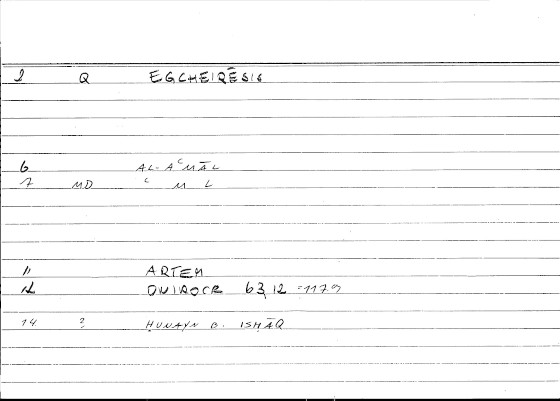 2 Q EGCHEIRĒSIS
6 AL-AʿMĀL
7 MD ʿ M L
11 ARTEM
12 ONIROCR 63,12 =1179
14 ? ḤUNAYN B. ISḤĀQ